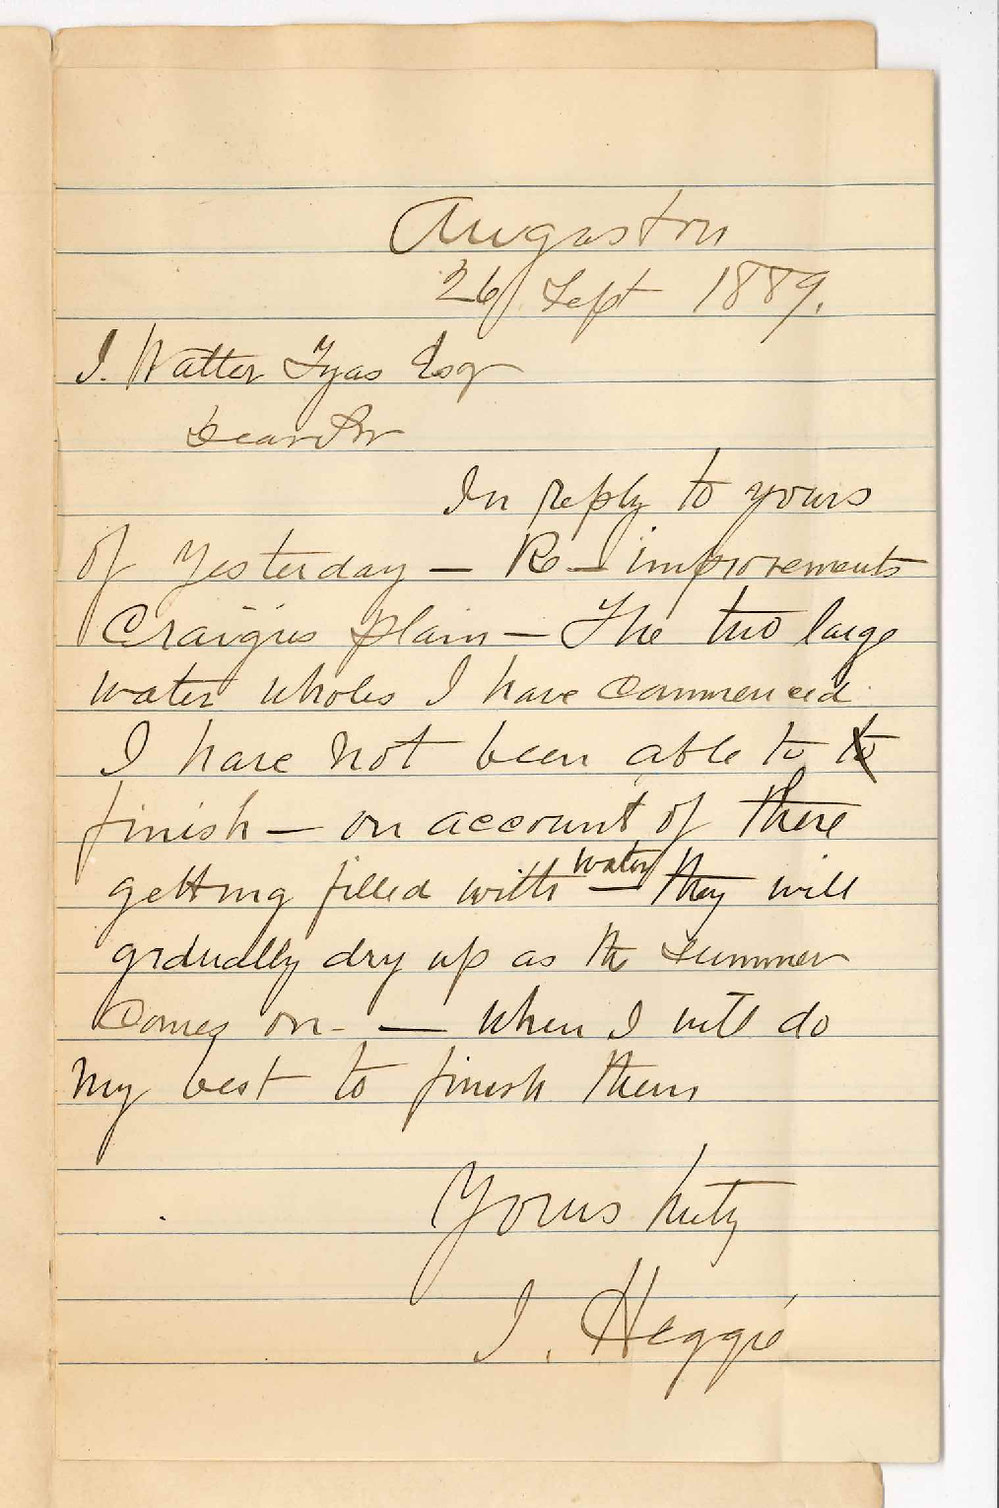 Angaston
26 Sept 1889.
J. Walter Tyas Esqr
Dear Sir
In reply to yours
of Yesterday — Re — improvements
Craigies plain — The two large
water wholes I have commenced
I have not been able to to
finish — on account of there
getting filled with water — they will
gradually dry up as the summer
comes on - — when I will do
my best to finish them
Yours truly
J. Heggie